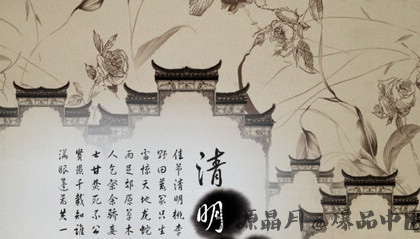 清明
佳节清明桃李
野田荒冢只生
雷惊天地龙蛇
雨足郊原草木
人乞祭余骄妾
士甘焚死不公
贤愚千载知谁
满眼蓬蒿共一
源晶月@爆品中